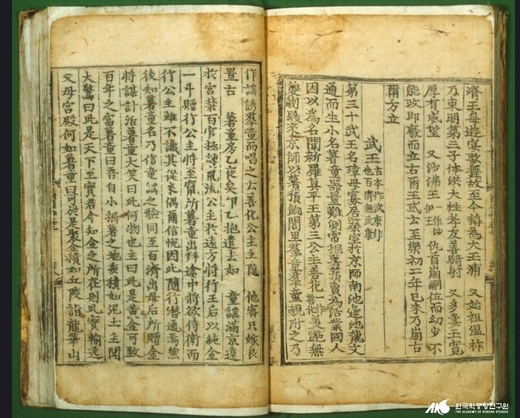 濟王每遊宴歌舞故至今稱為大王浦 又始祖溫祚
乃東明第三子体洪大性孝友善騎射 又多婁王寬
厚有威望 又沙沸王 仇首崩嗣位而幼少不
能政即廢而立古爾王或云至樂初二年己未乃崩古
爾方立
武王 古本作武康非也百濟無武康
第三十武王名璋母寡居築室於京師南池邊池龍交
通而生小名薯童器量難測常掘薯蕷賣為活業國人
因以為名聞新羅真平王第三公主善花一作善化美艶無
雙剃髮來京師以薯蕷餉閭里羣童羣童親附之乃
作謠誘羣童而唱之云善化公主主隱 他密只嫁良
置古 薯童房乙夜矣夘乙抱遣去如 童謠滿京達
於宮禁百官極諫竄流公主於遠方將行王后以純金
一斗贈行公主將至竄所薯童出拜途中將欲侍衛而
行公主雖不識其從來偶爾信悅因此隨行潛通焉然
後知薯童名乃信童謠之驗同至百濟出母后所贈金
將謀計活薯童大笑曰此何物也主曰此是黃金可致
百年之富薯童曰吾自小掘薯之地委積如泥土主聞
大驚曰此是天下至寶君今知金之所在則此寶輸送
父母宮殿何如薯童曰可於是聚金積如丘陵詣龍華山
한국학중앙연구원
THE ACADEMY OF KOREAN STUDIES